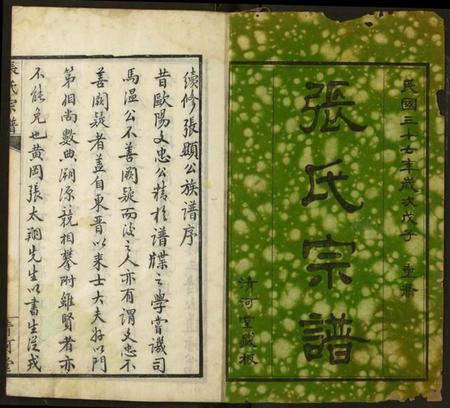 民國三十七年歲次戊子 重脩
張氏宗譜
清河堂藏板
續修張顯公族譜序
昔歐陽文忠公精於譜牒之學嘗譏司
馬溫公不善闕疑而後之人亦有謂文忠不
善闕疑者蓋自東晉以來士大夫好以門
第相尚數典溯源競相攀附雖賢者亦
不能免也黃岡張太翔先生以書生從戎
張氏宗譜
清河堂